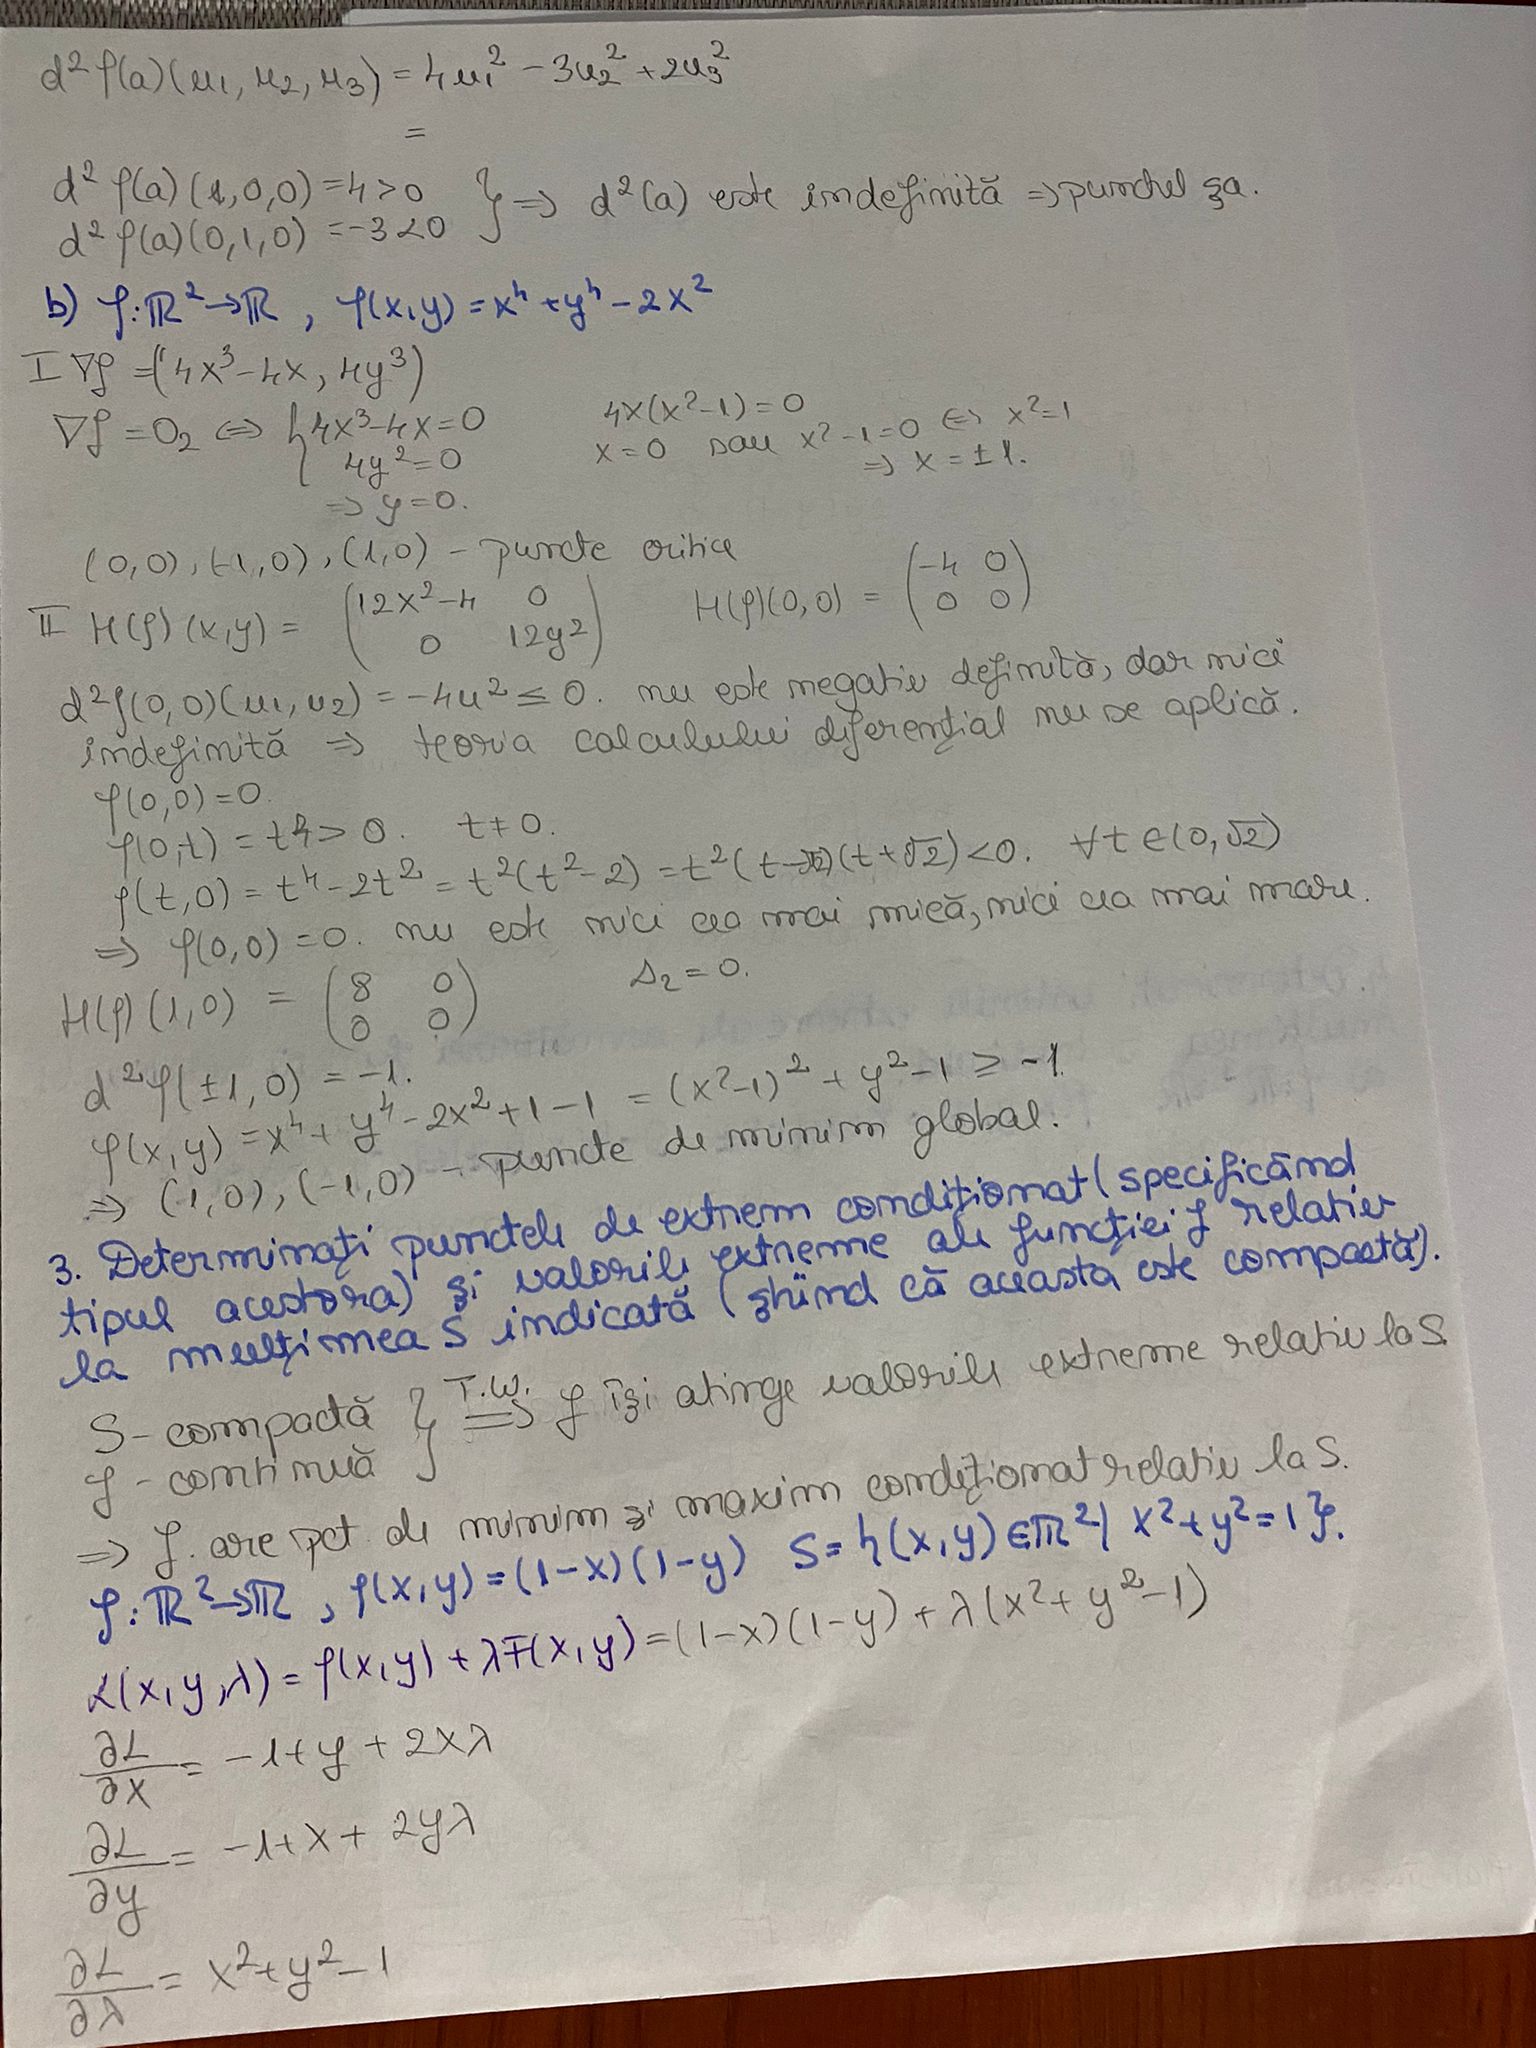 d²f(a)(u₁, u₂, u₃) = 4u₁² - 3u₂² + 2u₃²
=
d²f(a)(1,0,0) = 4 > 0 } ⇒ d²(a) este indefinită ⇒ punctul șa.
d²f(a)(0,1,0) = -3 < 0
b) f: ℝ² → ℝ, f(x,y) = x⁴ + y⁴ - 2x²
I ∇f = (4x³ - 4x, 4y³)
∇f = O₂ ⇔ { 4x³ - 4x = 0 4x(x² - 1) = 0
4y² = 0 x = 0 sau x² - 1 = 0 ⇔ x² = 1
⇒ y = 0. ⇒ x = ±1.
(0,0), (-1,0), (1,0) - puncte critice
II H(f)(x,y) = (12x² - 4 0 H(f)(0,0) = (-4 0
0 12y²) 0 0)
d²f(0,0)(u₁, u₂) = -4u² ≤ 0. nu este negativ definită, dar nici
indefinită ⇒ teoria calculului diferențial nu se aplică.
f(0,0) = 0.
f(0,t) = t⁴ > 0. t ≠ 0.
f(t,0) = t⁴ - 2t² = t²(t² - 2) = t²(t - √2)(t + √2) < 0. ∀t ∈ (0, √2)
⇒ f(0,0) = 0. nu este nici cea mai mică, nici cea mai mare.
H(f)(1,0) = (8 0 Δ₂ = 0.
0 0)
d²f(±1,0) = -1.
f(x,y) = x⁴ + y⁴ - 2x² + 1 - 1 = (x² - 1)² + y² - 1 ≥ -1.
⇒ (1,0), (-1,0) - puncte de minim global.
3. Determinați punctele de extrem condiționat (specificând
tipul acestora) și valorile extreme ale funcției f relativ
la mulțimea S indicată (știind că aceasta este compactă).
S - compactă } T.W. ⇒ f își atinge valorile extreme relativ la S
f - continuă
⇒ f. are pct. de minim și maxim condiționat relativ la S.
f: ℝ² → ℝ, f(x,y) = (1-x)(1-y) S = {(x,y) ∈ ℝ² | x² + y² = 1}.
L(x,y,λ) = f(x,y) + λF(x,y) = (1-x)(1-y) + λ(x² + y² - 1)
∂L/∂x = -1 + y + 2xλ
∂L/∂y = -1 + x + 2yλ
∂L/∂λ = x² + y² - 1